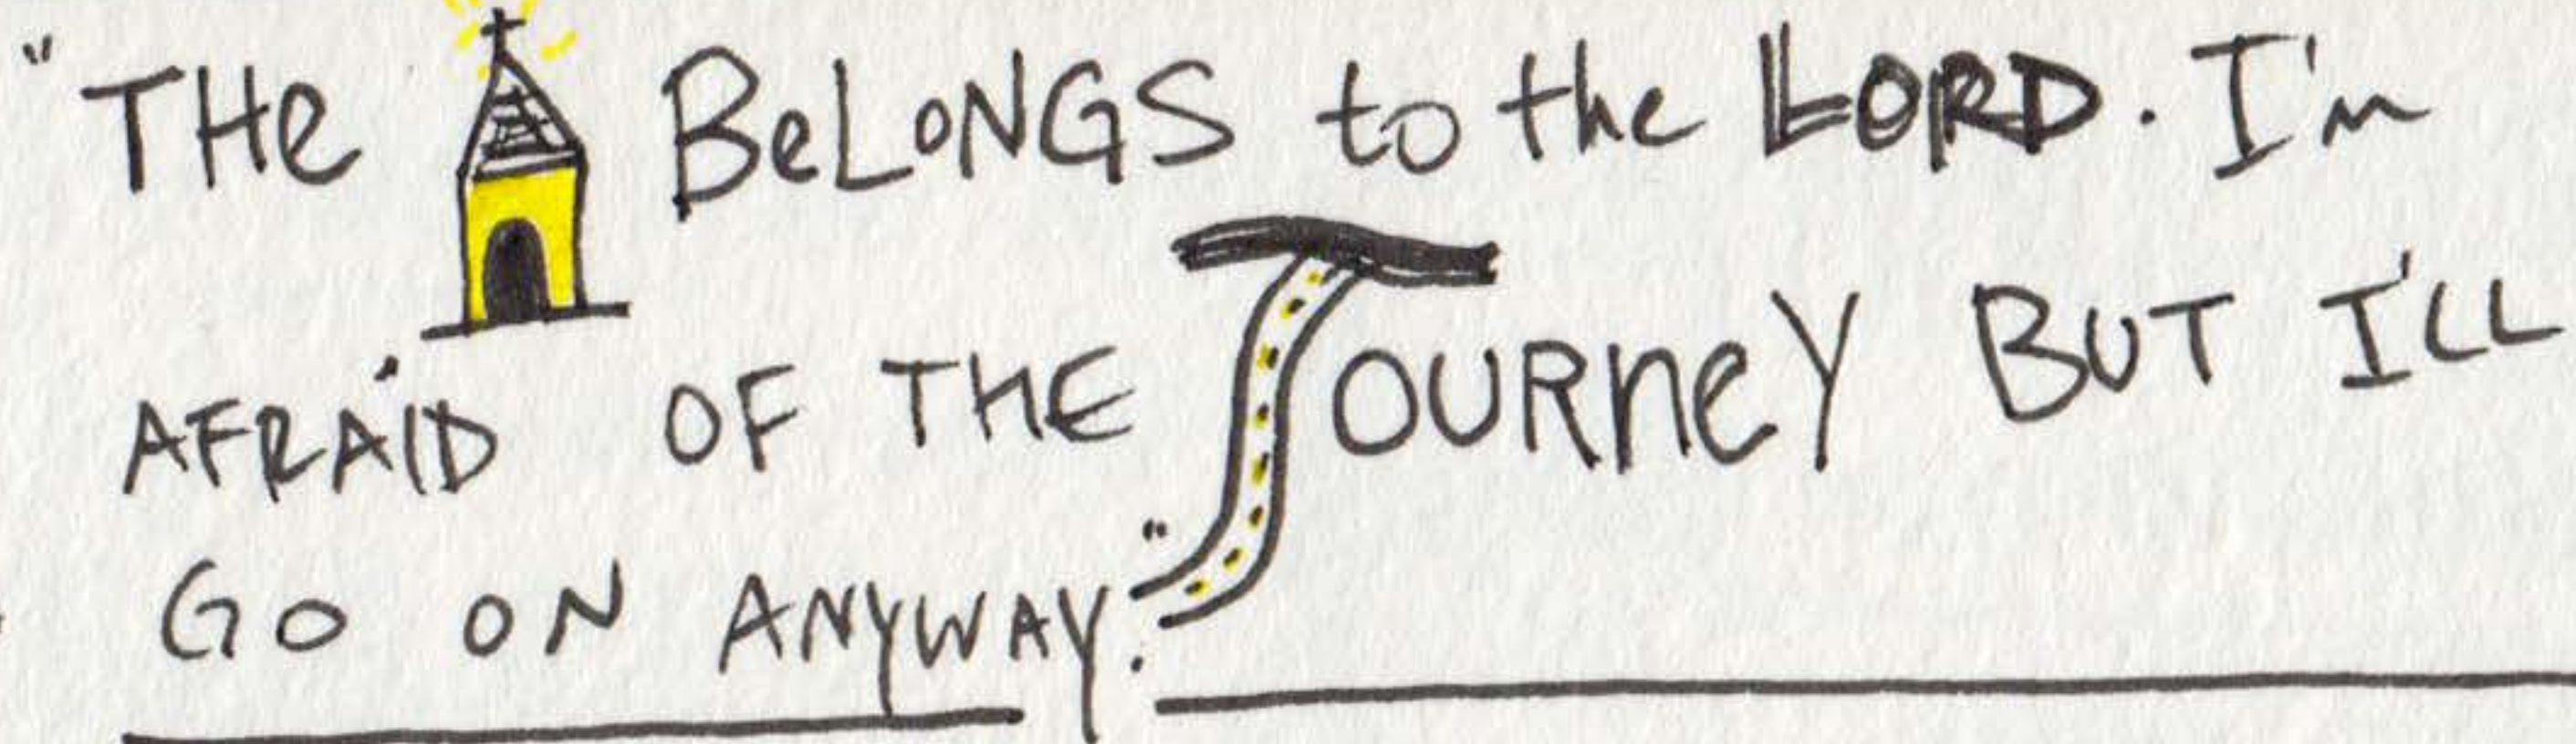 "THe BeLoNGS to the LORD. I'm
AFRAID OF THE JOURneY BUT I'LL
GO ON ANYWAY."